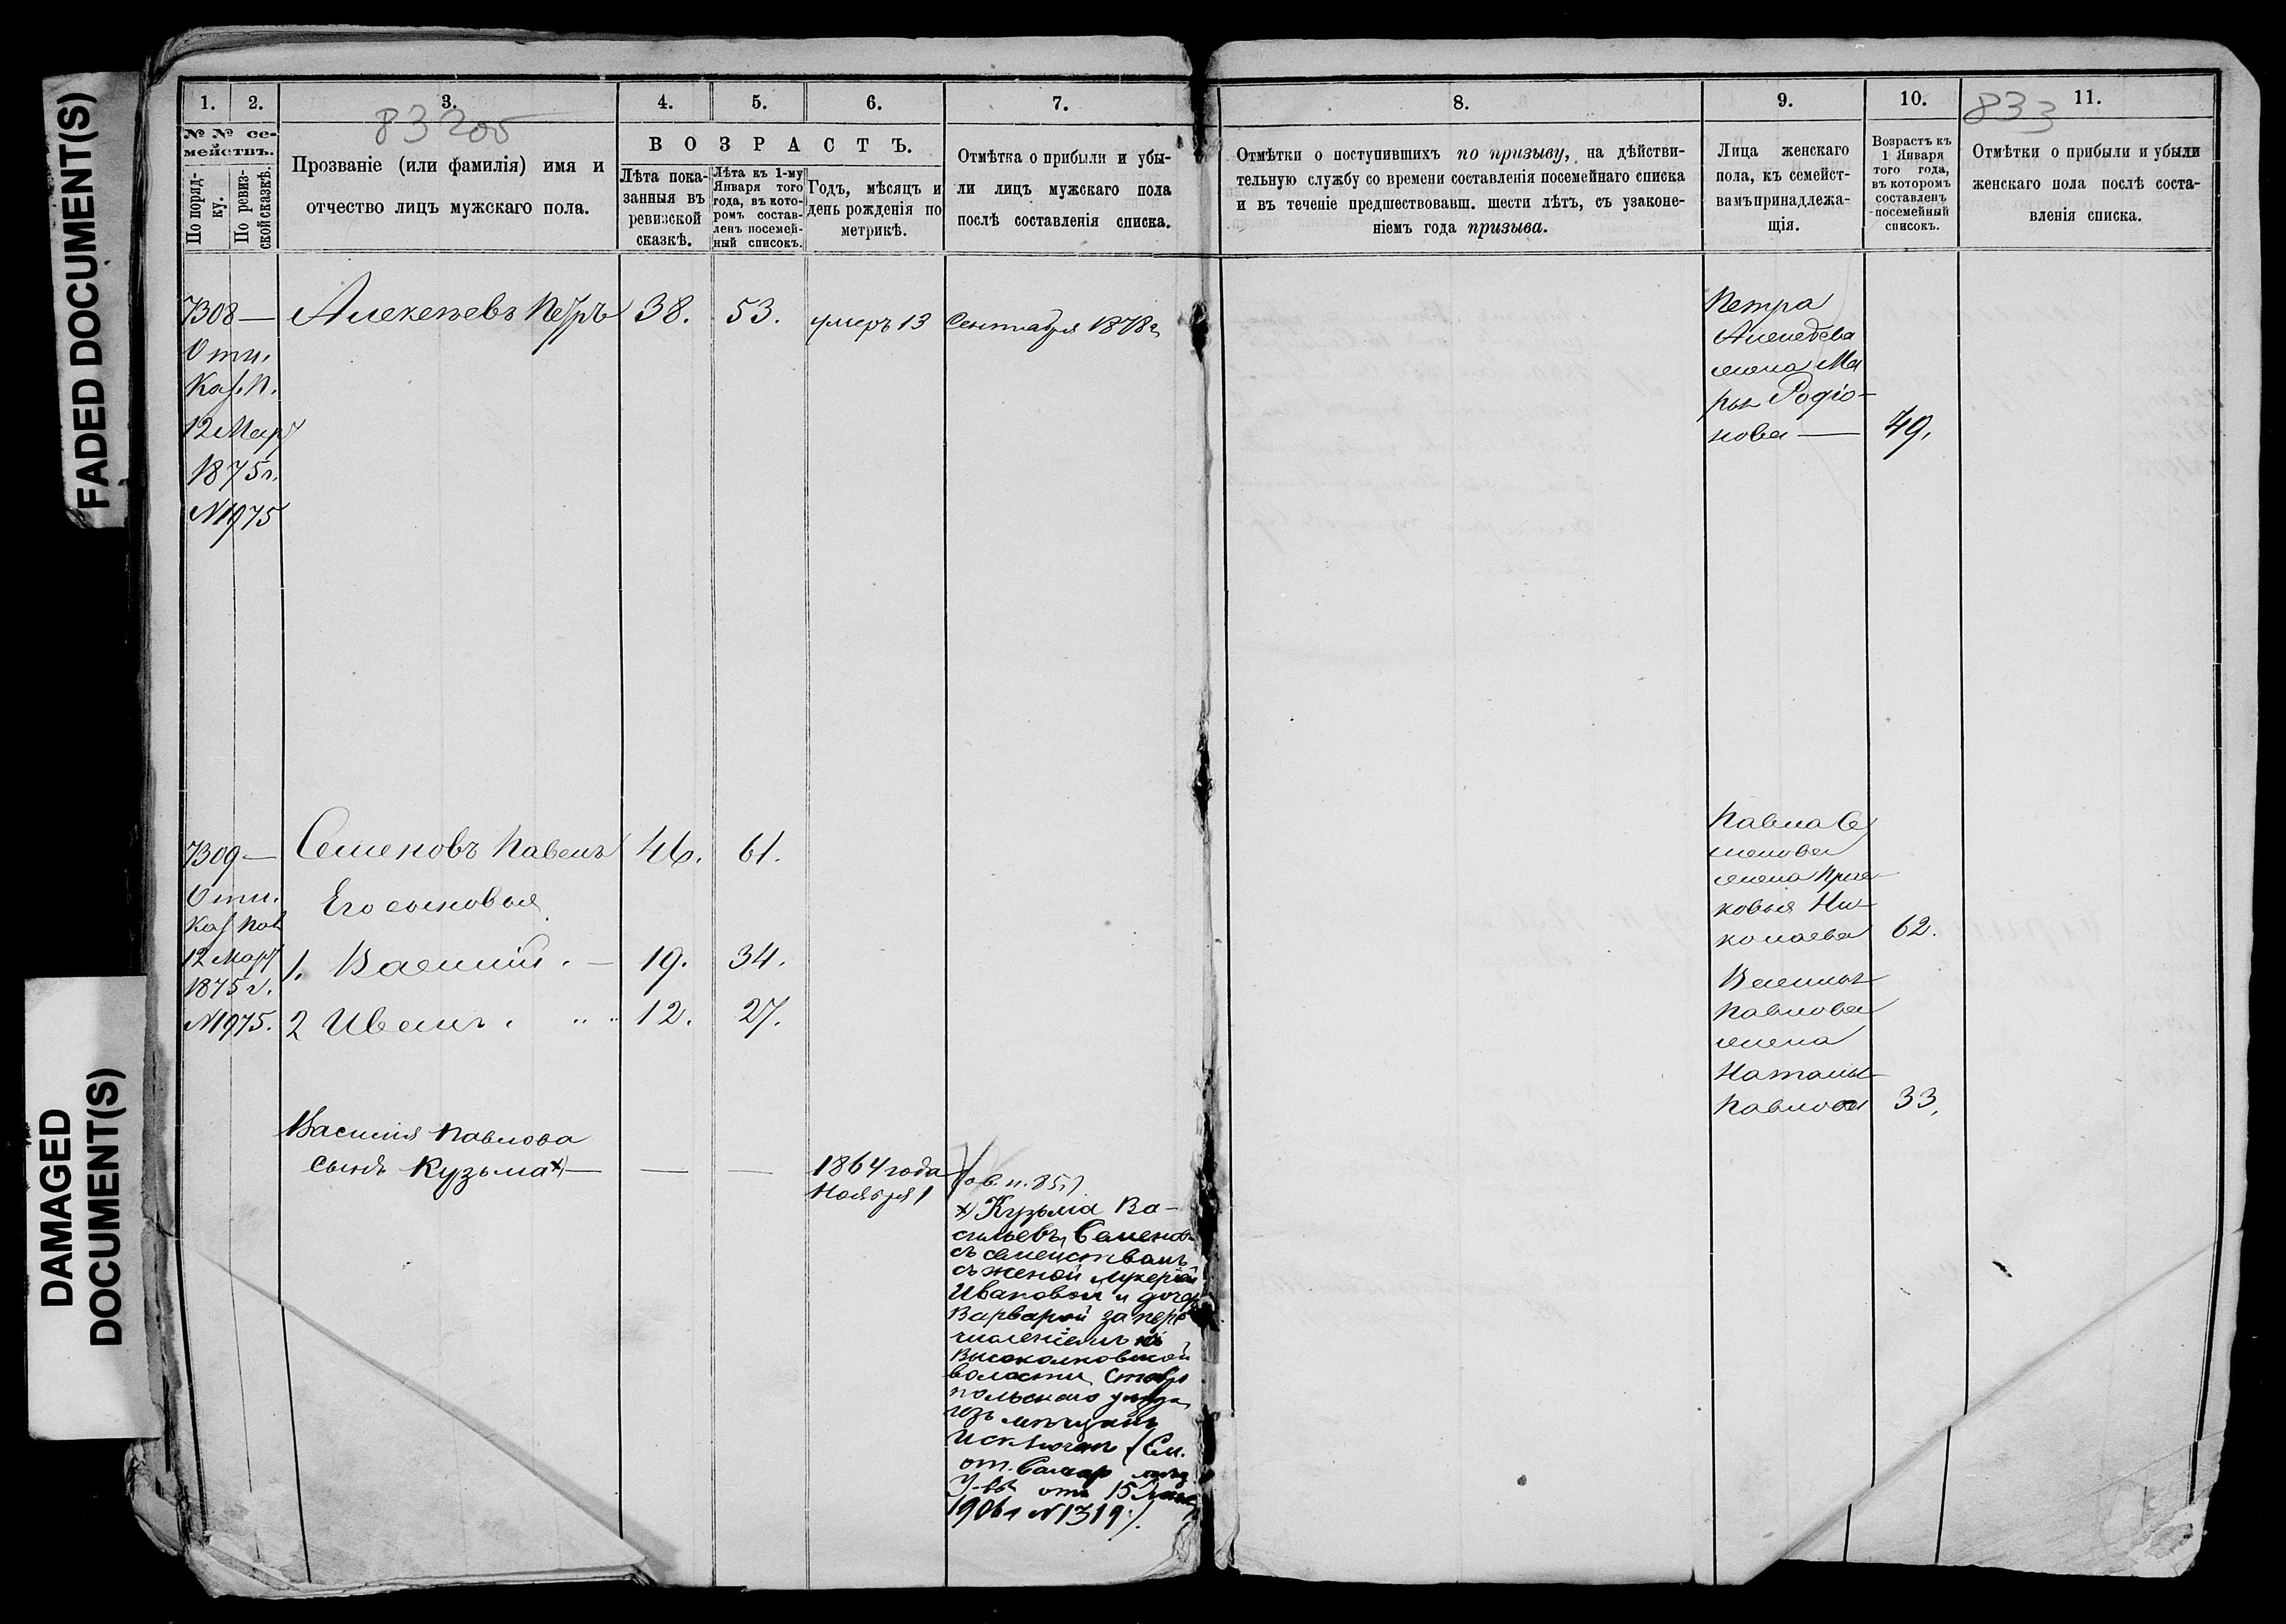 FADED DOCUMENT(S)
DAMAGED
DOCUMENT(S)
1. 2. 3. 4. 5. 6. 7.
83 205
№ № се-
мействъ.
По поряд-
ку.
По ревиз-
ской сказкѣ.
Прозваніе (или фамилія) имя и
отчество лицъ мужскаго пола.
ВОЗРАСТЪ.
Лѣта пока-
занныя въ
ревизской
сказкѣ.
Лѣта къ 1-му
Января того
года, въ кото-
ромъ состав-
ленъ посемей-
ный списокъ.
Годъ, мѣсяцъ и
день рожденія по
метрикѣ.
Отмѣтка о прибыли и убы-
ли лицъ мужскаго пола
послѣ составленія списка.
7308— Алексѣевъ Петръ 38. 53. умеръ 13 Сентября 1878 г.
Отн.
Каз. П.
12 Мар.
1875 г.
№ 1975
7309— Семеновъ Павелъ 46. 61.
Отн.
Каз Пал
12 Мар
1875 г.
№ 1975.
Его сыновья
1. Василій. — 19. 34.
2 Иванъ. 12. 27.
Василія Павлова
сынъ Кузьма х)— — —
1864 года
Ноября 1
х) Кузьма Ва-
сильевъ Семенов
съ семействомъ
съ женой Лукерьей
Ивановой и дочер
Варварой за пере
численіемъ къ
волости Ставро
польскаго уѣзда
изъ мѣщанъ
исключенъ (См.
от. Самар
У-вы отъ 15
1906 г № 1319.)
8. 9. 10. 11.
833
Отмѣтки о поступившихъ по призыву, на дѣйстви-
тельную службу со времени составленія посемейнаго списка
и въ теченіе предшествовавш. шести лѣтъ, съ узаконе-
ніемъ года призыва.
Лица женскаго
пола, къ семейст-
вамъ принадлежа-
щія.
Возрастъ къ
1 Января
того года,
въ которомъ
составленъ
посемейный
списокъ.
Отмѣтки о прибыли и убыли
женскаго пола послѣ соста-
вленія списка.
Петра
Алексѣева
жена Ма
рья Родіо-
нова — 49.
Павла Се
менова
жена Прас-
ковья Ни-
колаева 62.
Василья
Павлова
жена
Наталья
Павлова 33.